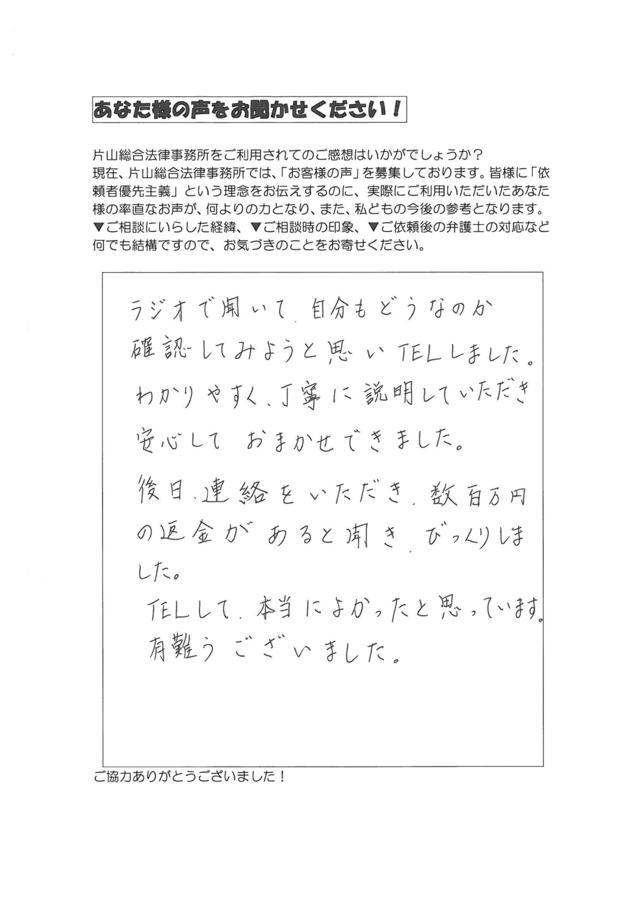 あなた様の声をお聞かせください！
片山総合法律事務所をご利用されてのご感想はいかがでしょうか？
現在、片山総合法律事務所では、「お客様の声」を募集しております。皆様に「依
頼者優先主義」という理念をお伝えするのに、実際にご利用いただいたあなた
様の率直なお声が、何よりの力となり、また、私どもの今後の参考となります。
▼ご相談にいらした経緯、▼ご相談時の印象、▼ご依頼後の弁護士の対応など
何でも結構ですので、お気づきのことをお寄せください。
ラジオで聞いて、自分もどうなのか
確認してみようと思いTELしました。
わかりやすく、丁寧に説明していただき
安心して おまかせできました。
後日、連絡をいただき、数百万円
の返金があると聞き、びっくりしま
した。
TELして、本当によかったと思っています。
有難うございました。
ご協力ありがとうございました！